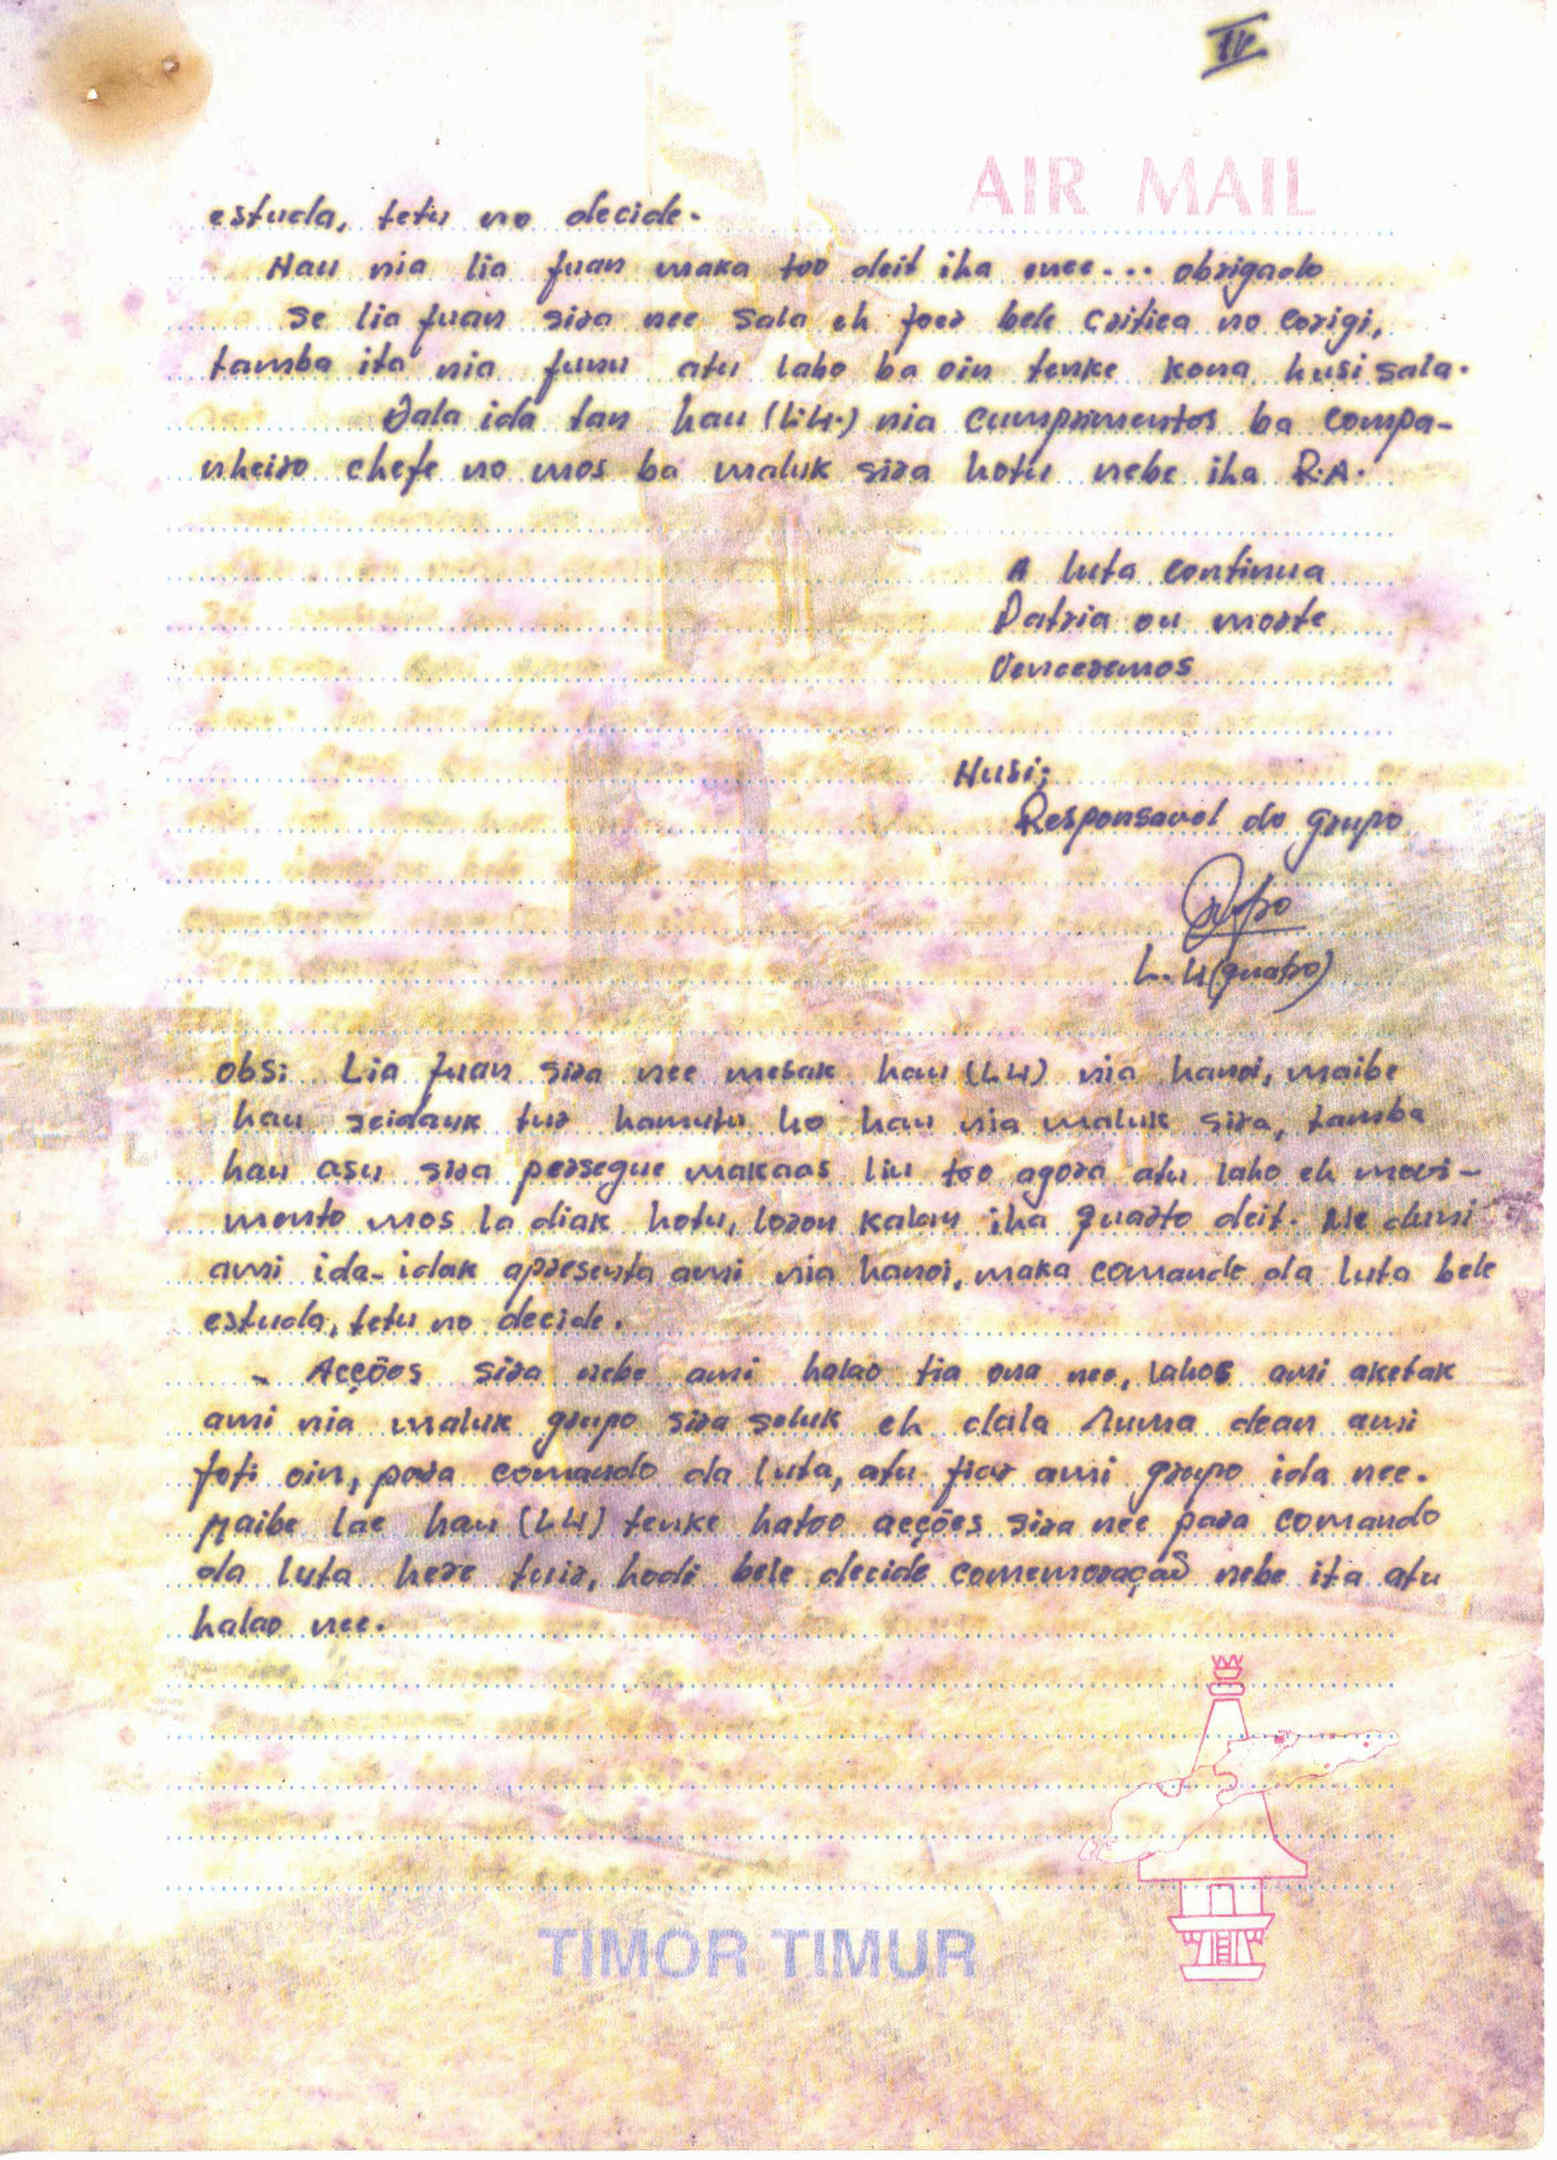 IV
AIR MAIL
estuda, tetu no decide.
Hau nia lia fuan maka too deit iha nee... obrigado
Se lia fuan sira nee sala eh foer bele critica no corigi,
tamba ita nia funu atu laho ba oin tenke kona husi sala.
Dala ida tan hau (L.4.) nia cumprimentos ba compa-
nheiro chefe no mos ba maluk sira hotu nebe iha R.A.
A luta continua
Patria ou morte
Venceremos
Husi;
Responsavel do grupo
L. 4 (quatro)
obs: Lia fuan sira nee mesak hau (L4) nia hanoi, maibe
hau seidauk tur hamutu ho hau nia maluk sira, tamba
hau asu sira persegue makaas liu too agora atu laho eh movi-
mento mos la diak hotu, loron kalan iha quarto deit. Ne duni
ami ida-idak apresenta ami nia hanoi, maka comando da luta bele
estuda, tetu no decide.
- Acções sira nebe ami halao tia ona nee, lahos ami aketak
ami nia maluk grupo sira seluk eh dala ruma dean ami
foti oin, para comando da luta, atu fiar ami grupo ida nee.
Maibe lae hau (L4) tenke hatoo acções sira nee para comando
da luta here tuir, hodi bele decide comemoração nebe ita atu
halao nee.
TIMOR TIMUR